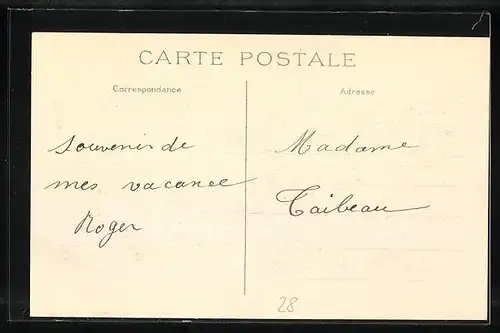 CARTE POSTALE
Correspondance
Adresse
Souvenir de
mes vacance
Roger
Madame
Taibeau
28